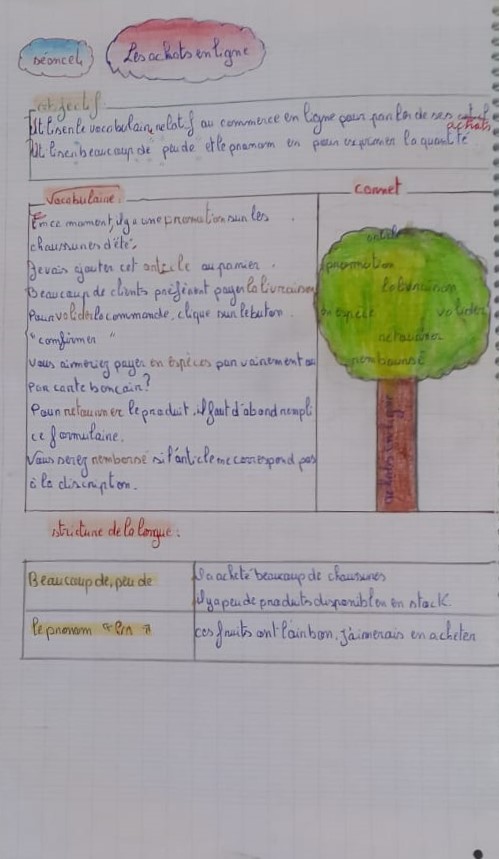 séance 1
Les achats en ligne
objectif
Utiliser le vocabulaire relatif au commerce en ligne pour parler de ses
achats
Utiliser beaucoup de peu de et le pronom en pour exprimer la quantité
Vocabulaire :
En ce moment, il y a une promotion sur les
chaussures d'été.
Je vais ajouter cet article au panier.
Beaucoup de clients préfèrent payer la livraison
Pour valider la commande, clique sur le buton
"comfirmer"
Vous aimeriez payer en espèces par vairement ou
par carte boncain ?
Pour retourner le produit, il faut d'abord rempli
ce formulaire.
Vous serez remborsé si l'article me correspond pas
à la discription.
carnet
article
promotion
la livraison
en espèce
valider
retourner
remboursé
Achats en ligne
stricture de la langue :
Beaucoup de, peu de
Il a acheté beaucoup de chaussures
il y a peu de produits disponible en stock.
le pronom "En"
ces fruits ont l'air bon, j'aimerais en acheter